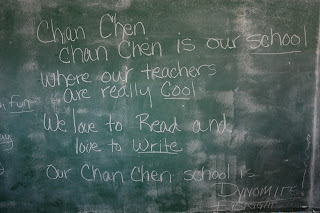 Chan Chen
Chan Chen is our school
where our teachers
are really Cool
We love to Read and
love to Write
Our Chan Chen school is
DYNOMITE!
fun